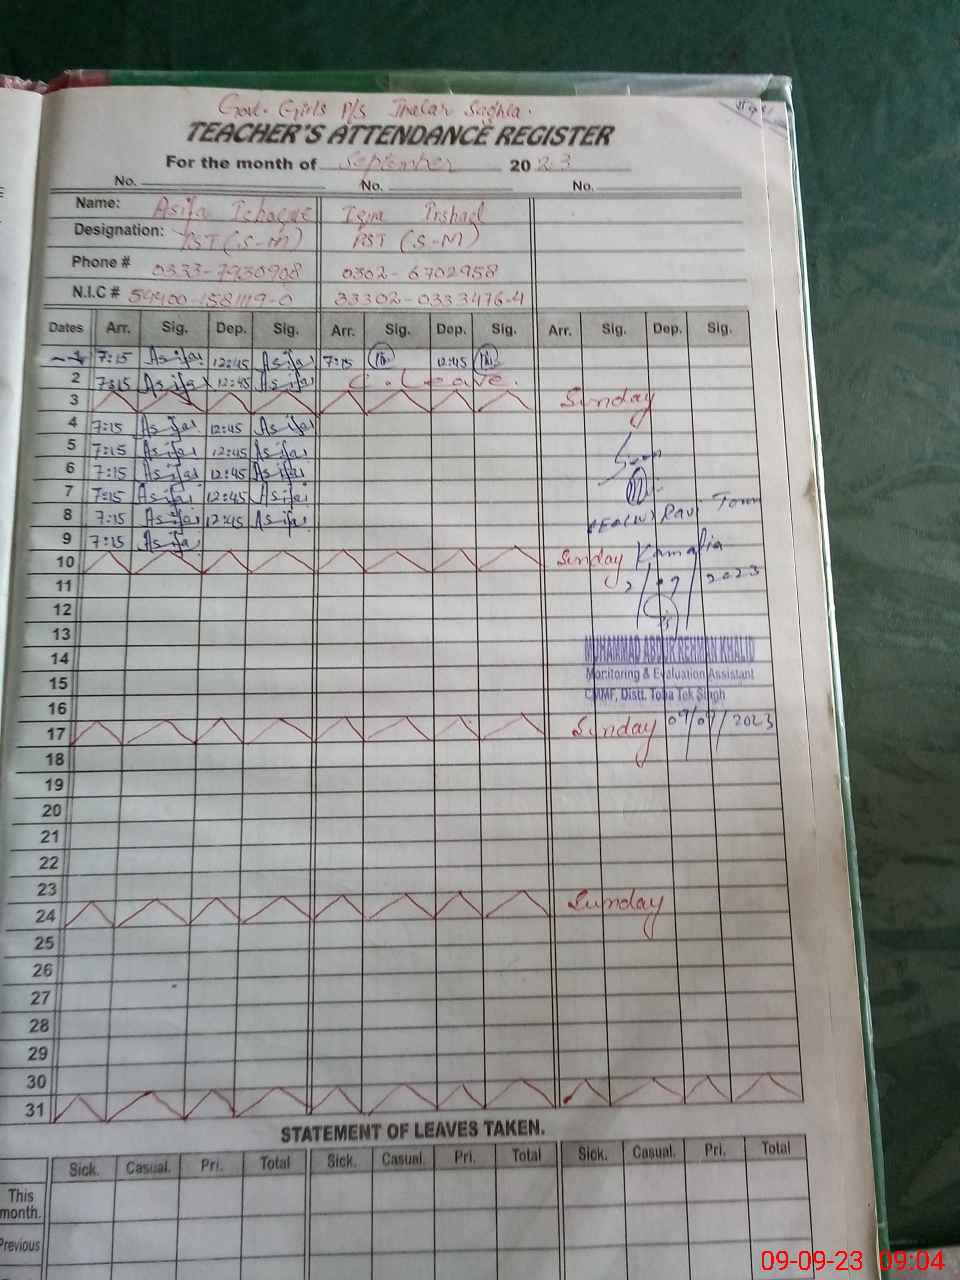 Govt. Girls P/S
TEACHER'S ATTENDANCE REGISTER
For the month of September 2023
No. No. No.
Name: Asifa Iqra Irshad
Designation: PST (S-M) PST (S-M)
Phone # 0333-7930908 0302-6702958
N.I.C # 33302-0333476-4
Dates Arr. Sig. Dep. Sig. Arr. Sig. Dep. Sig. Arr. Sig. Dep. Sig.
1 7:15 Asifa 12:45 Asifa 7:15 12:45
2 7:15 Asifa 12:45 Asifa C. Leave.
3 Sunday
4 7:15 Asifa 12:45 Asifa
5 7:15 Asifa 12:45 Asifa
6 7:15 Asifa 12:45 Asifa
7 7:15 Asifa 12:45 Asifa
8 7:15 Asifa 12:45 Asifa
AEO(W) Ravi Town
9 7:15 Asifa
Kamalia
10 Sunday
11 2/9/2023
12
13
MUHAMMAD ABDUR REHMAN KHALID
14
Monitoring & Evaluation Assistant
15
CMMF, Distt. Toba Tek Singh
16
17 Sunday 09/09/2023
18
19
20
21
22
23
24 Sunday
25
26
27
28
29
30
31
STATEMENT OF LEAVES TAKEN.
Sick. Casual. Pri. Total Sick. Casual. Pri. Total Sick. Casual. Pri. Total
This
month.
Previous
09-09-23 09:04